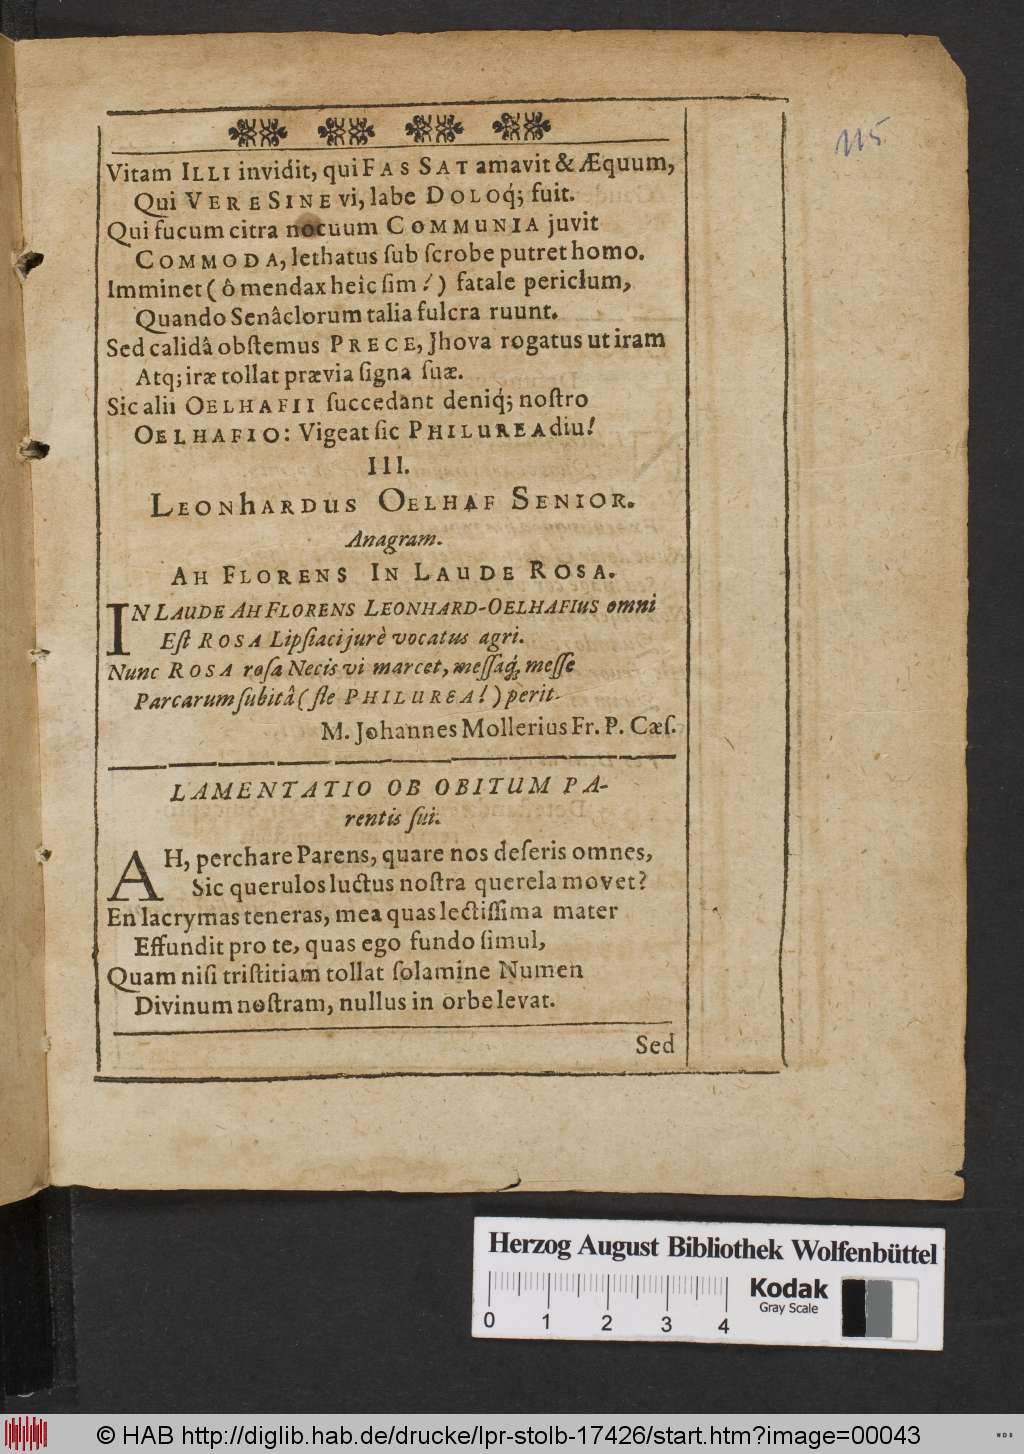 115
Vitam ILLI invidit, qui FAS SAT amavit & Æquum,
Qui VERE SINE vi, labe DOLOq́; fuit.
Qui fucum citra nocuum COMMUNIA juvit
COMMODA, lethatus ſub ſcrobe putret homo.
Imminet ( ô mendax heîc ſim! ) fatale periclum,
Quando Senâclorum talia fulcra ruunt.
Sed calidâ obſtemus PRECE, Jhova rogatus ut iram
Atq; iræ tollat prævia ſigna ſuæ.
Sic alii OELHAFII ſuccedant deniq́; noſtro
OELHAFIO: Vigeat ſic PHILUREA diu!
III.
LEONhARDUS OELHAF SENIOR.
Anagram.
AH FLORENS IN LAUDE ROSA.
IN LAUDE AH FLORENS LEONHARD-OELHAFIUS omni
Eſt ROSA Lipſiaci jurè vocatus agri.
Nunc ROSA roſa Necis vi marcet, meſſaq́; meſſe
Parcarum ſubitâ ( fle PHILUREA! ) perit.
M. Johannes Mollerius Fr. P. Cæſ.
LAMENTATIO OB OBITUM PA-
rentis ſui.
AH, perchare Parens, quare nos deſeris omnes,
Sic querulos luctus noſtra querela movet?
En lacrymas teneras, mea quas lectiſſima mater
Effundit pro te, quas ego fundo ſimul,
Quam niſi triſtitiam tollat ſolamine Numen
Divinum noſtram, nullus in orbe levat.
Sed
Herzog August Bibliothek Wolfenbüttel
Kodak
Gray Scale
0 1 2 3 4
© HAB http://diglib.hab.de/drucke/lpr-stolb-17426/start.htm?image=00043
WDB